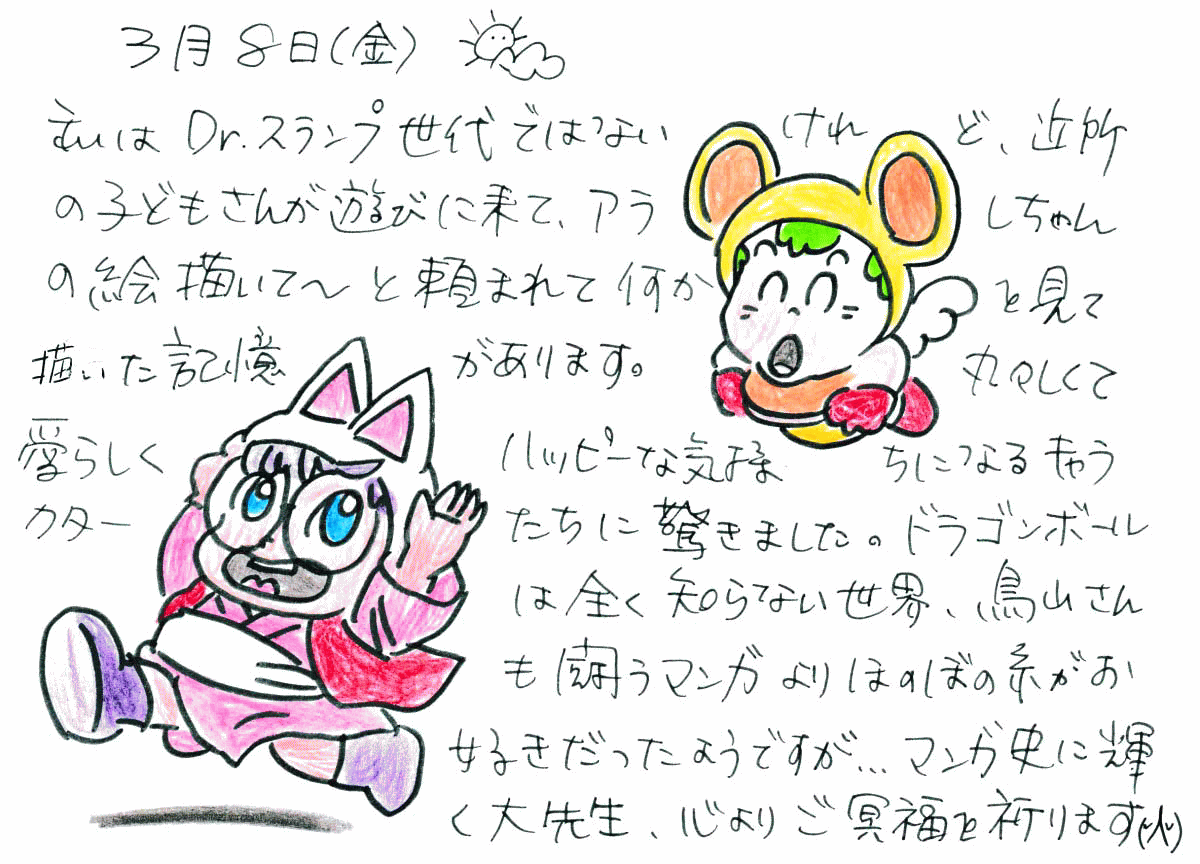 3月8日(金)
むいは Dr.スランプ世代ではないけれど、近所
の子どもさんが遊びに来て、アラしちゃん
の絵描いて〜と頼まれて何かを見て
描いた記憶があります。丸々しくて
愛らしくハッピーな気持ちになるキャラ
カターたちに驚きました。ドラゴンボール
は全く知らない世界、鳥山さん
も闘うマンガよりほのぼの系がお
好きだったようですが…マンガ史に輝
く大先生、心よりご冥福を祈ります